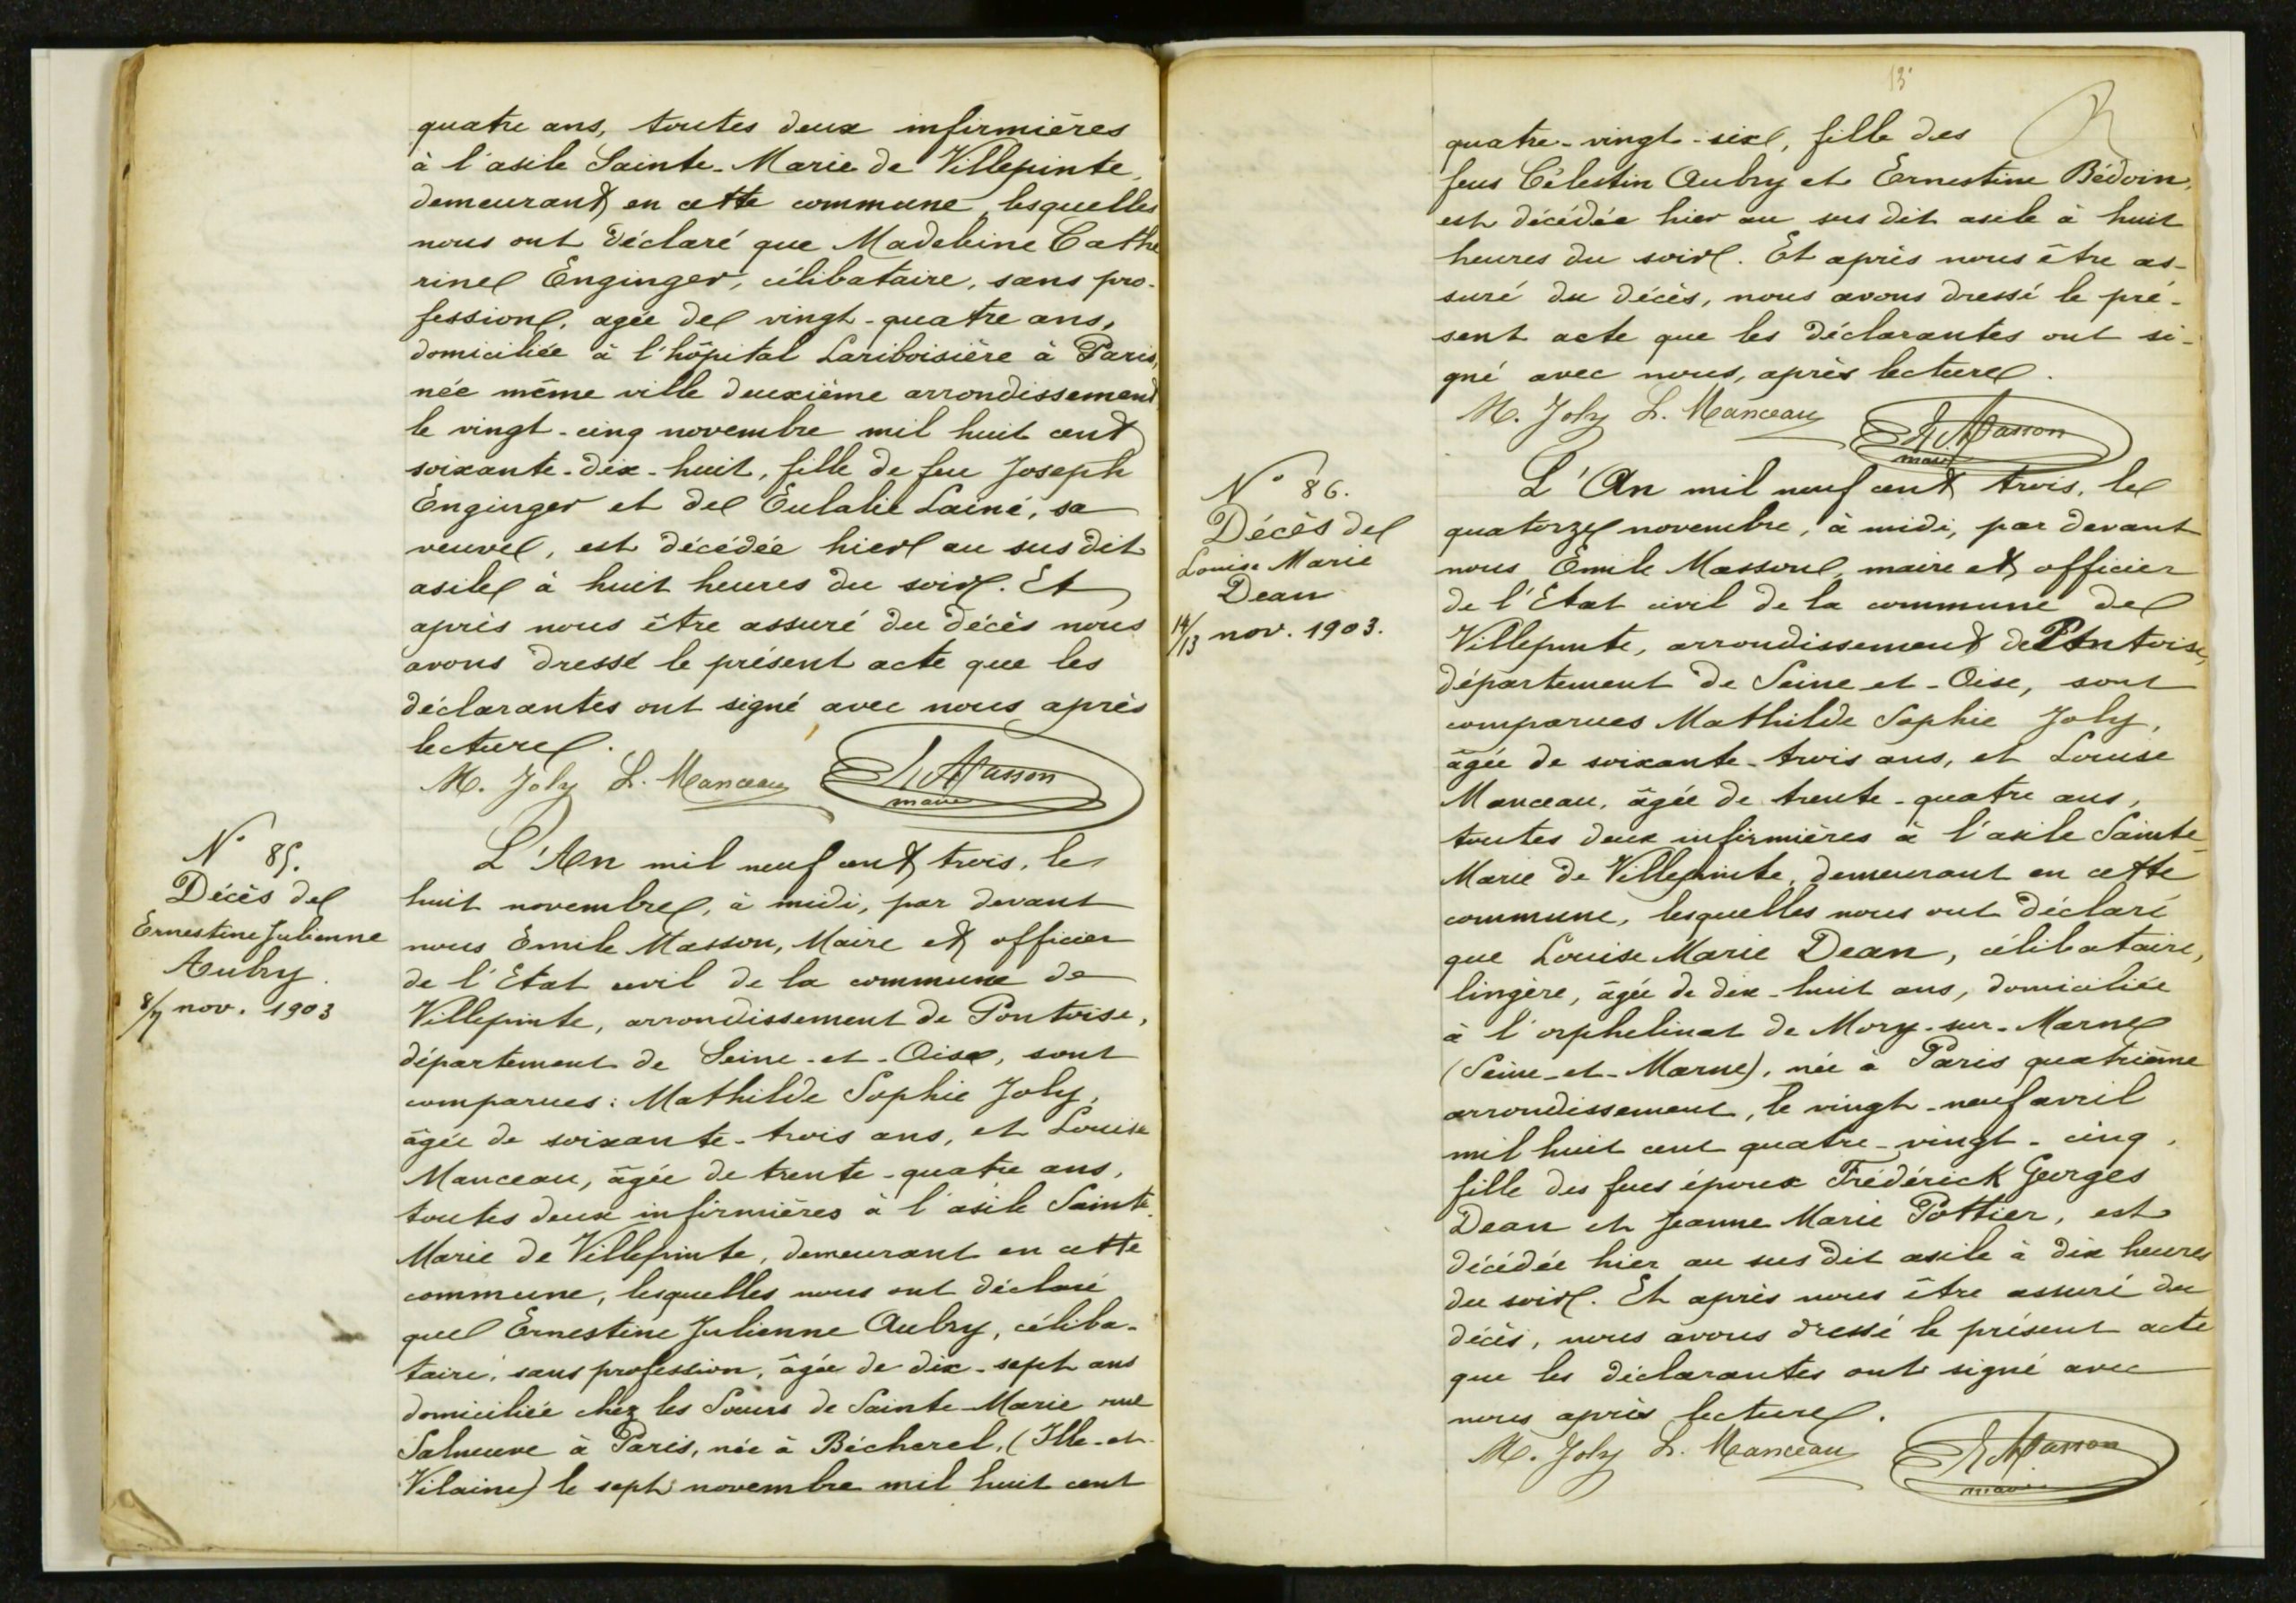 quatre ans, toutes deux infirmières
à l'asile Sainte-Marie de Villepinte,
demeurant en cette commune, lesquelles
nous ont déclaré que Madeleine Cathe
rine Enginger, célibataire, sans pro-
fession, agée de vingt-quatre ans,
domiciliée à l'hôpital Lariboisière à Paris,
née même ville deuxième arrondissement
le vingt-cinq novembre mil huit cent
soixante-dix-huit, fille de feu Joseph
Enginger et de Eulalie Lainé, sa
veuve, est décédée hier au sus dit
asile à huit heures du soir. Et
après nous être assuré du décès nous
avons dressé le présent acte que les
déclarantes ont signé avec nous après
lecture.
M. Joly L. Manceau E. Masson
maire
N° 85.
Décès de
Ernestine Julienne
Aubry.
8/7 nov. 1903
L'An mil neuf cent trois, le
huit novembre, à midi, par devant
nous Emile Masson, Maire et officier
de l'Etat civil de la commune de
Villepinte, arrondissement de Pontoise,
département de Seine-et-Oise, sont
comparues: Mathilde Sophie Joly,
âgée de soixante-trois ans, et Louise
Manceau, âgée de trente-quatre ans,
toutes deux infirmières à l'asile Sainte-
Marie de Villepinte, demeurant en cette
commune, lesquelles nous ont déclaré
que Ernestine Julienne Aubry, céliba-
taire, sans profession, âgée de dix-sept ans
domiciliée chez les Sœurs de Sainte-Marie rue
Salneuve à Paris, née à Bécherel, (Ille-et-
Vilaine) le sept novembre mil huit cent
13
quatre-vingt-six, fille des
feus Célestin Aubry et Ernestine Bédoin,
est décédée hier au sus dit asile à huit
heures du soir. Et après nous être as-
suré du décès, nous avons dressé le pré-
sent acte que les déclarantes ont si-
gné avec nous, après lecture.
M. Joly L. Manceau E. Masson
maire
N° 86.
Décès de
Louise Marie
Dean
14/13 nov. 1903.
L'An mil neuf cent trois, le
quatorze novembre, à midi, par devant
nous Emile Masson, maire et officier
de l'Etat civil de la commune de
Villepinte, arrondissement de Pontoise,
département de Seine-et-Oise, sont
comparues Mathilde Sophie Joly,
âgée de soixante-trois ans, et Louise
Manceau, âgée de trente-quatre ans,
toutes deux infirmières à l'asile Sainte-
Marie de Villepinte, demeurant en cette
commune, lesquelles nous ont déclaré
que Louise Marie Dean, célibataire,
lingère, âgée de dix-huit ans, domiciliée
à l'orphelinat de Mory-sur-Marne
(Seine-et-Marne), née à Paris quatrième
arrondissement, le vingt-neuf avril
mil huit cent quatre-vingt-cinq,
fille des feus époux Frédérick Georges
Dean et Jeanne Marie Pottier, est
décédée hier au sus dit asile à dix heures
du soir. Et après nous être assuré du
décès, nous avons dressé le présent acte
que les déclarantes ont signé avec
nous après lecture.
M. Joly L. Manceau E. Masson
maire